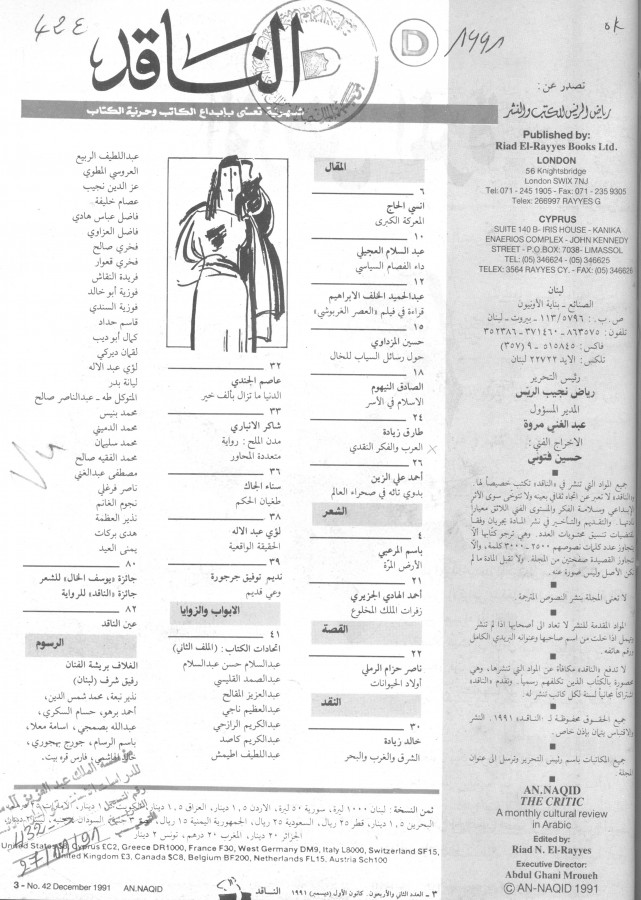 42E
D
1991
ok
الناقد
شهرية تعنى بإبداع الكاتب وحرية الكتاب
المقال
٦
انسي الحاج
المعركة الكبرى
١٠
عبد السلام العجيلي
داء الفصام السياسي
١٢
عبدالحميد الخلف الابراهيم
قراءة في فيلم «العصر الغربوشي»
١٥
حسين المزداوي
حول رسائل السياب للخال
١٨
الصادق النيهوم
الاسلام في الأسر
٢٤
طارق زيادة
العرب والفكر النقدي
٢٦
أحمد علي الزين
بدوي تائه في صحراء العالم
الشعر
٤
باسم المرعبي
الأرض المرّة
٢١
أحمد الهادي الجزيري
زفرات الملك المخلوع
القصة
٢٢
ناصر حزام الرملي
أولاد الحيوانات
النقد
٣٠
خالد زيادة
الشرق والغرب والبحر
٣٢
عاصم الجندي
الدنيا ما تزال بألف خير
٣٣
شاكر الانباري
مدن الملح: رواية
متعددة المحاور
٣٦
سناء الجاك
طغيان الحكم
٣٨
لؤي عبد الاله
الحقيقة الواقعية
٣٩
نديم توفيق جرجورة
وعي قديم
الابواب والزوايا
٤١
اتحادات الكتاب: (الملف الثاني)
عبدالسلام حسن عبدالسلام
عبدالصمد القليسي
عبدالعزيز المقالح
عبدالعظيم ناجي
عبدالكريم الرازحي
عبدالكريم كاصد
عبداللطيف اطيمش
عبداللطيف الربيع
العروسي المطوي
عز الدين نجيب
عصام خليفة
فاضل عباس هادي
فاضل العزاوي
فخري صالح
فخري قعوار
فريدة النقاش
فوزية أبو خالد
فوزية السندي
قاسم حداد
كمال أبو ديب
لقمان ديركي
لؤي عبد الاله
ليانة بدر
المتوكل طه - عبدالناصر صالح
محمد بنيس
محمد الدميني
محمد سليمان
محمد الفقيه صالح
مصطفى عبدالغني
ناصر فرغلي
نجوم الغانم
نذير العظمة
هدى بركات
يمنى العيد
٨٠
جائزة «يوسف الخال» للشعر
جائزة «الناقد» للرواية
٨٢
عين الناقد
الرسوم
الغلاف بريشة الفنان
رفيق شرف (لبنان)
نذير نبعة، محمد شمس الدين،
أحمد برهو، حسام السكري،
عبدالله بصمجي، اسامة معلا،
باسم الرسام، جورج بهجوري،
فارس قره بيت.
1132
27/11/91
ثمن النسخة: لبنان ١٠٠٠ ليرة، سورية ٥٠ ليرة، الاردن ١,٥ دينار، العراق ١,٥ دينار، الكويت ١ دينار، الامارات
البحرين ١,٥ دينار، قطر ٢٥ ريال، السعودية ٢٥ ريال، الجمهورية اليمنية ١٥ ريال، السودان
الجزائر ٢٠ دينار، المغرب ٢٠ درهم، تونس ٢ دينار
United States $8, Cyprus £C2, Greece DR1000, France F30, West Germany DM9, Italy L8000, Switzerland SF15,
United Kingdom £3, Canada $C8, Belgium BF200, Netherlands FL15, Austria Sch100
3 - No. 42 December 1991 AN.NAQID
٣ - العدد الثاني والأربعون. كانون الأول (ديسمبر) ١٩٩١ الناقد
تصدر عن:
رياض الريس للكتب والنشر
Published by:
Riad El-Rayyes Books Ltd.
LONDON
56 Knightsbridge
London SWIX 7NJ
Tel: 071 - 245 1905 - Fax: 071 - 235 9305
Telex: 266997 RAYYES G
CYPRUS
SUITE 140 B- IRIS HOUSE - KANIKA
ENAERIOS COMPLEX - JOHN KENNEDY
STREET - P.O.BOX: 7038- LIMASSOL
TEL: (05) 346624 - (05) 346625
TELEX: 3564 RAYYES CY. - FAX: (05) 346626
لبنان
الصنائع - بناية الأونيون
ص. ب.: ١١٣/٥٧٩٦ - بيروت - لبنان
تلفون: ٨٦٣٥٧٥ - ٣٧١٤٦٠ - ٣٥٢٣٨٦
فاكس: ٥١٥٨٤٥ - ٩ (٣٥٧)
تلكس: الايد ٢٢٧٢٢ لبنان
رئيس التحرير
رياض نجيب الريّس
المدير المسؤول
عبد الغني مروة
الاخراج الفني:
حسين فتوني
جميع المواد التي تنشر في «الناقد» تكتب خصيصاً لها
والناقد» لا تعبر عن اتجاه ثقافي بعينه ولا تتوخى سوى الاثر
الابداعي وسلامة الفكر والمستوى الفني اللائق معياراً
لمادتها. والتقديم والتأخير في نشر المادة يجريان وفقاً
لمقتضيات تنسيق محتويات العدد. وهي ترجو كتّابها ألّا
يتجاوز عدد كلمات نصوصهم ٢٥٠٠ - ٣٠٠٠ كلمة، وألّا
تتجاوز القصيدة صفحتين من المجلة. ولا تقبل المادة ما لم
تكن الأصل وليس صورة عنه.
لا تعنى المجلة بنشر النصوص المترجمة.
المواد المقدمة للنشر لا تعاد الى أصحابها اذا لم تنشر
وتهمل اذا خلت من اسم صاحبها وعنوانه البريدي الكامل
ورقم هاتفه.
لا تدفع «الناقد» مكافأة عن المواد التي تنشرها، وهي
محصورة بالكتّاب الذين تكلفهم رسمياً. وتقدم «الناقد»
اشتراكاً مجانياً لسنة لكل كاتب تنشر له.
جميع الحقوق محفوظة لـ «الناقد» ١٩٩١. النشر
والاقتباس يتمان بإذن خاص.
جميع المكاتبات باسم رئيس التحرير وترسل الى عنوان
المجلة.
AN.NAQID
THE CRITIC
A monthly cultural review
in Arabic
Edited by:
Riad N. El-Rayyes
Executive Director:
Abdul Ghani Mroueh
© AN-NAQID 1991